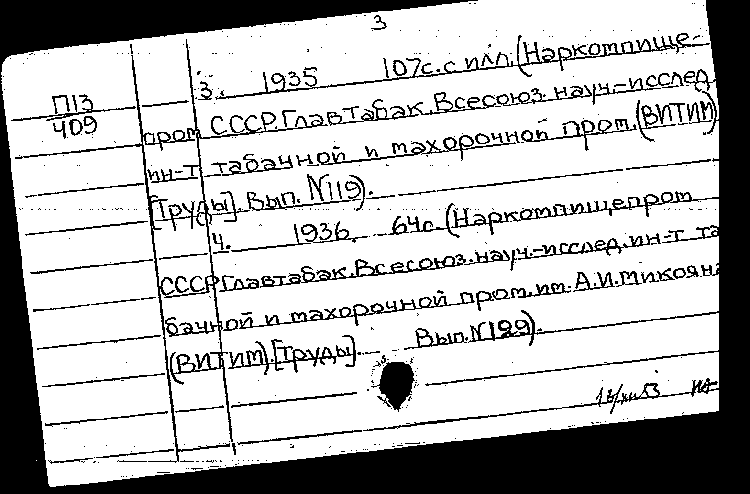 3
П13
409
3. 1935 107с. с илл. (Наркомпище-
пром СССР. Главтабак. Всесоюз. науч.-исслед.
ин-т табачной и махорочной пром. (ВИТИМ)
[Труды]. Вып. №119).
4. 1936. 64с. (Наркомпищепром
СССР. Главтабак. Всесоюз. науч.-исслед. ин-т та
бачной и махорочной пром. им. А.И. Микояна
(ВИТИМ). [Труды]. Вып. №129).